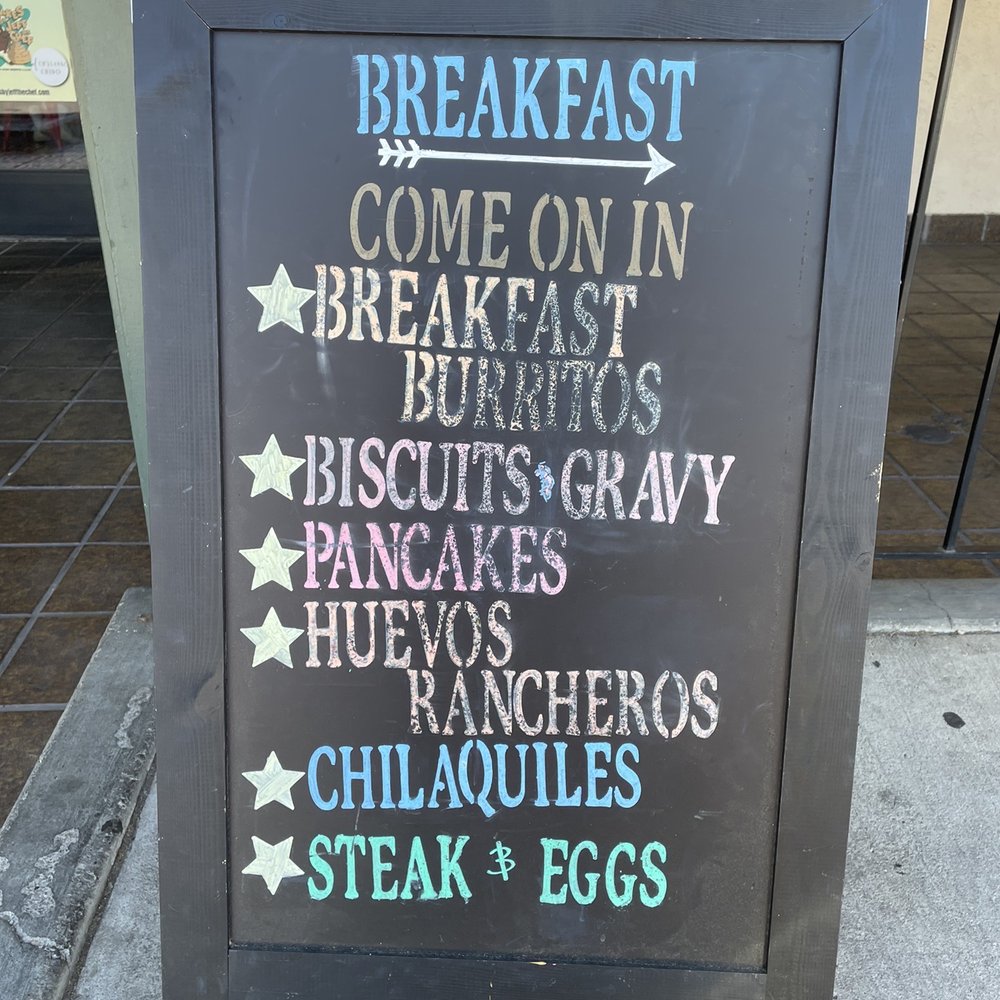 BREAKFAST
COME ON IN
BREAKFAST
BURRITOS
BISCUITS & GRAVY
PANCAKES
HUEVOS
RANCHEROS
CHILAQUILES
STEAK & EGGS